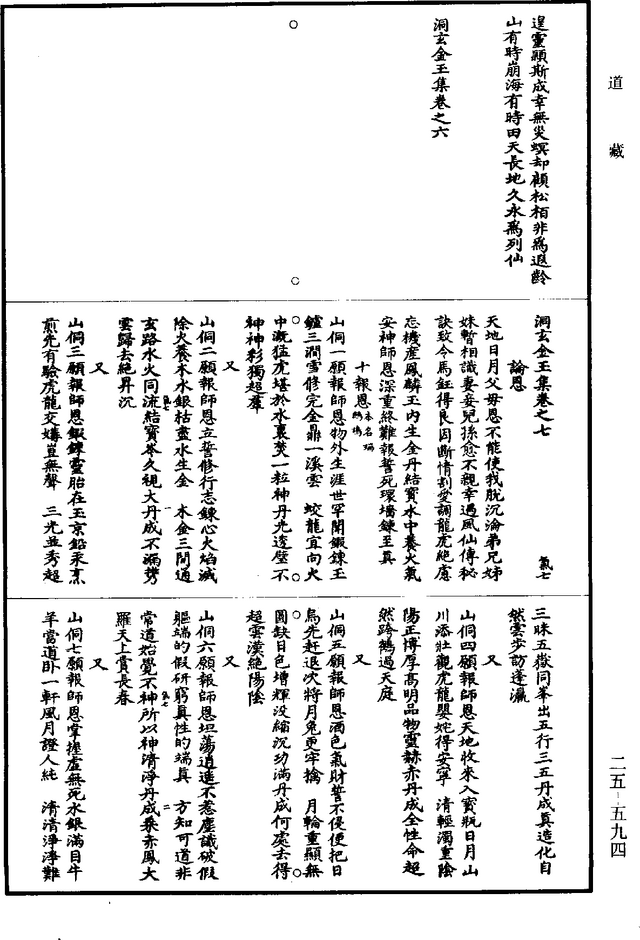 道藏
遑靈顯斯成幸無災螟却顧松栢非為遐齡
山有時崩海有時田天長地久永為列仙
洞玄金玉集卷之六
洞玄金玉集卷之七
氣七
論恩
天地日月父母恩不能使我脫沉淪弟兄姊
妹暫相識妻妾兒孫愈不親幸遇風仙傳秘
訣致令馬鈺得良因斷情割愛調龍虎絕慮
忘機產鳳麟玉內生金丹結寶水中養火氣
安神師恩深重終難報誓死環墻鍊至真
十報恩本名瑞鷓鴣
山侗一願報師恩物外生涯世罕聞鍛鍊玉
鑪三澗雪修完金鼎一溪雲 蛟龍宜向火
中漑猛虎堪於水裏焚一粒神丹光透壁不
神神彩獨超羣
又
山侗二願報師恩立誓修行志鍊心火焰滅
除火養木水銀枯盡水生金 木金三間通
玄路水火同流結寶岑久視大丹成不漏携
雲歸去絕昇沉
又
山侗三願報師恩鍛鍊靈胎在玉京鉛汞烹
煎先有驗虎龍交媾豈無聲 三光並秀超
三昧五嶽同峯出五行三五丹成真造化自
然雲步訪蓬瀛
又
山侗四願報師恩天地收來入寶瓶日月山
川添壯觀虎龍嬰姹得安寧 清輕濁重陰
陽正博厚高明品物靈赫赤丹成全性命超
然跨鶴過天庭
又
山侗五願報師恩酒色氣財誓不侵便把日
烏先趕退次將月兔更牢擒 月輪重顯無
圓缺日色增輝没縮沉功滿丹成何處去得
超雲漢絕陽陰
又
山侗六願報師恩坦蕩逍遙不惹塵識破假
軀端的假研窮真性的端真 方知可道非
常道始覺不神所以神清淨丹成乘赤鳳大
羅天上賞長春
又
山侗七願報師恩掌握虛無死水銀滿目牛
羊當道卧一軒風月證人純 清清淨淨難
二五‐五九四